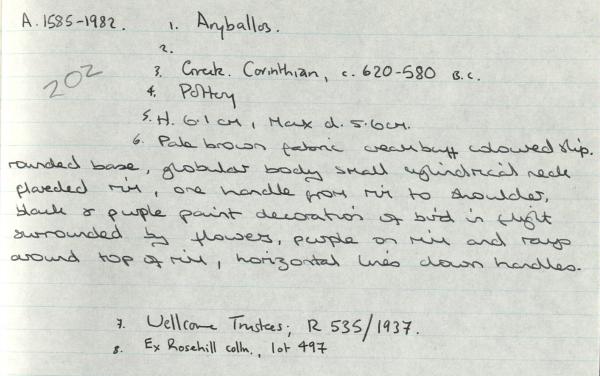 A.1585-1982. 1. Aryballos.
2.
202
3. Greek. Corinthian, c. 620-580 B.C.
4. Pottery
5. H. 6.1cm, Max d. 5.6cm.
6. Pale brown fabric creambuff coloured slip.
rounded base, globular body small cylindrical neck
flared rim, one handle from rim to shoulder,
black & purple paint decoration of bird in flight
surrounded by flowers, purple on rim and rays
around top of rim, horizontal lines down handles.
7. Wellcome Trustees; R 535/1937.
8. Ex Rosehill colln., lot 497